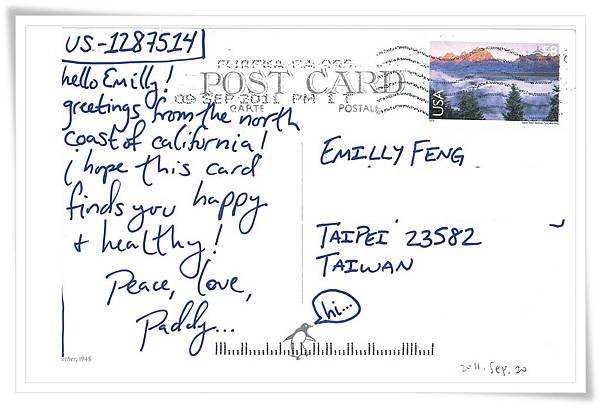 US-1287514
hello Emilly!
greetings from the north
coast of california!
i hope this card
finds you happy
& healthy!
Peace, love,
Paddy...
EUREKA CA
POST CARD
09 SEP 2011 PM 1 T
CARTE
POSTALE
USA
98
EMILLY FENG
TAIPEI 23582
TAIWAN
hi...
1945
2011. Sep. 20